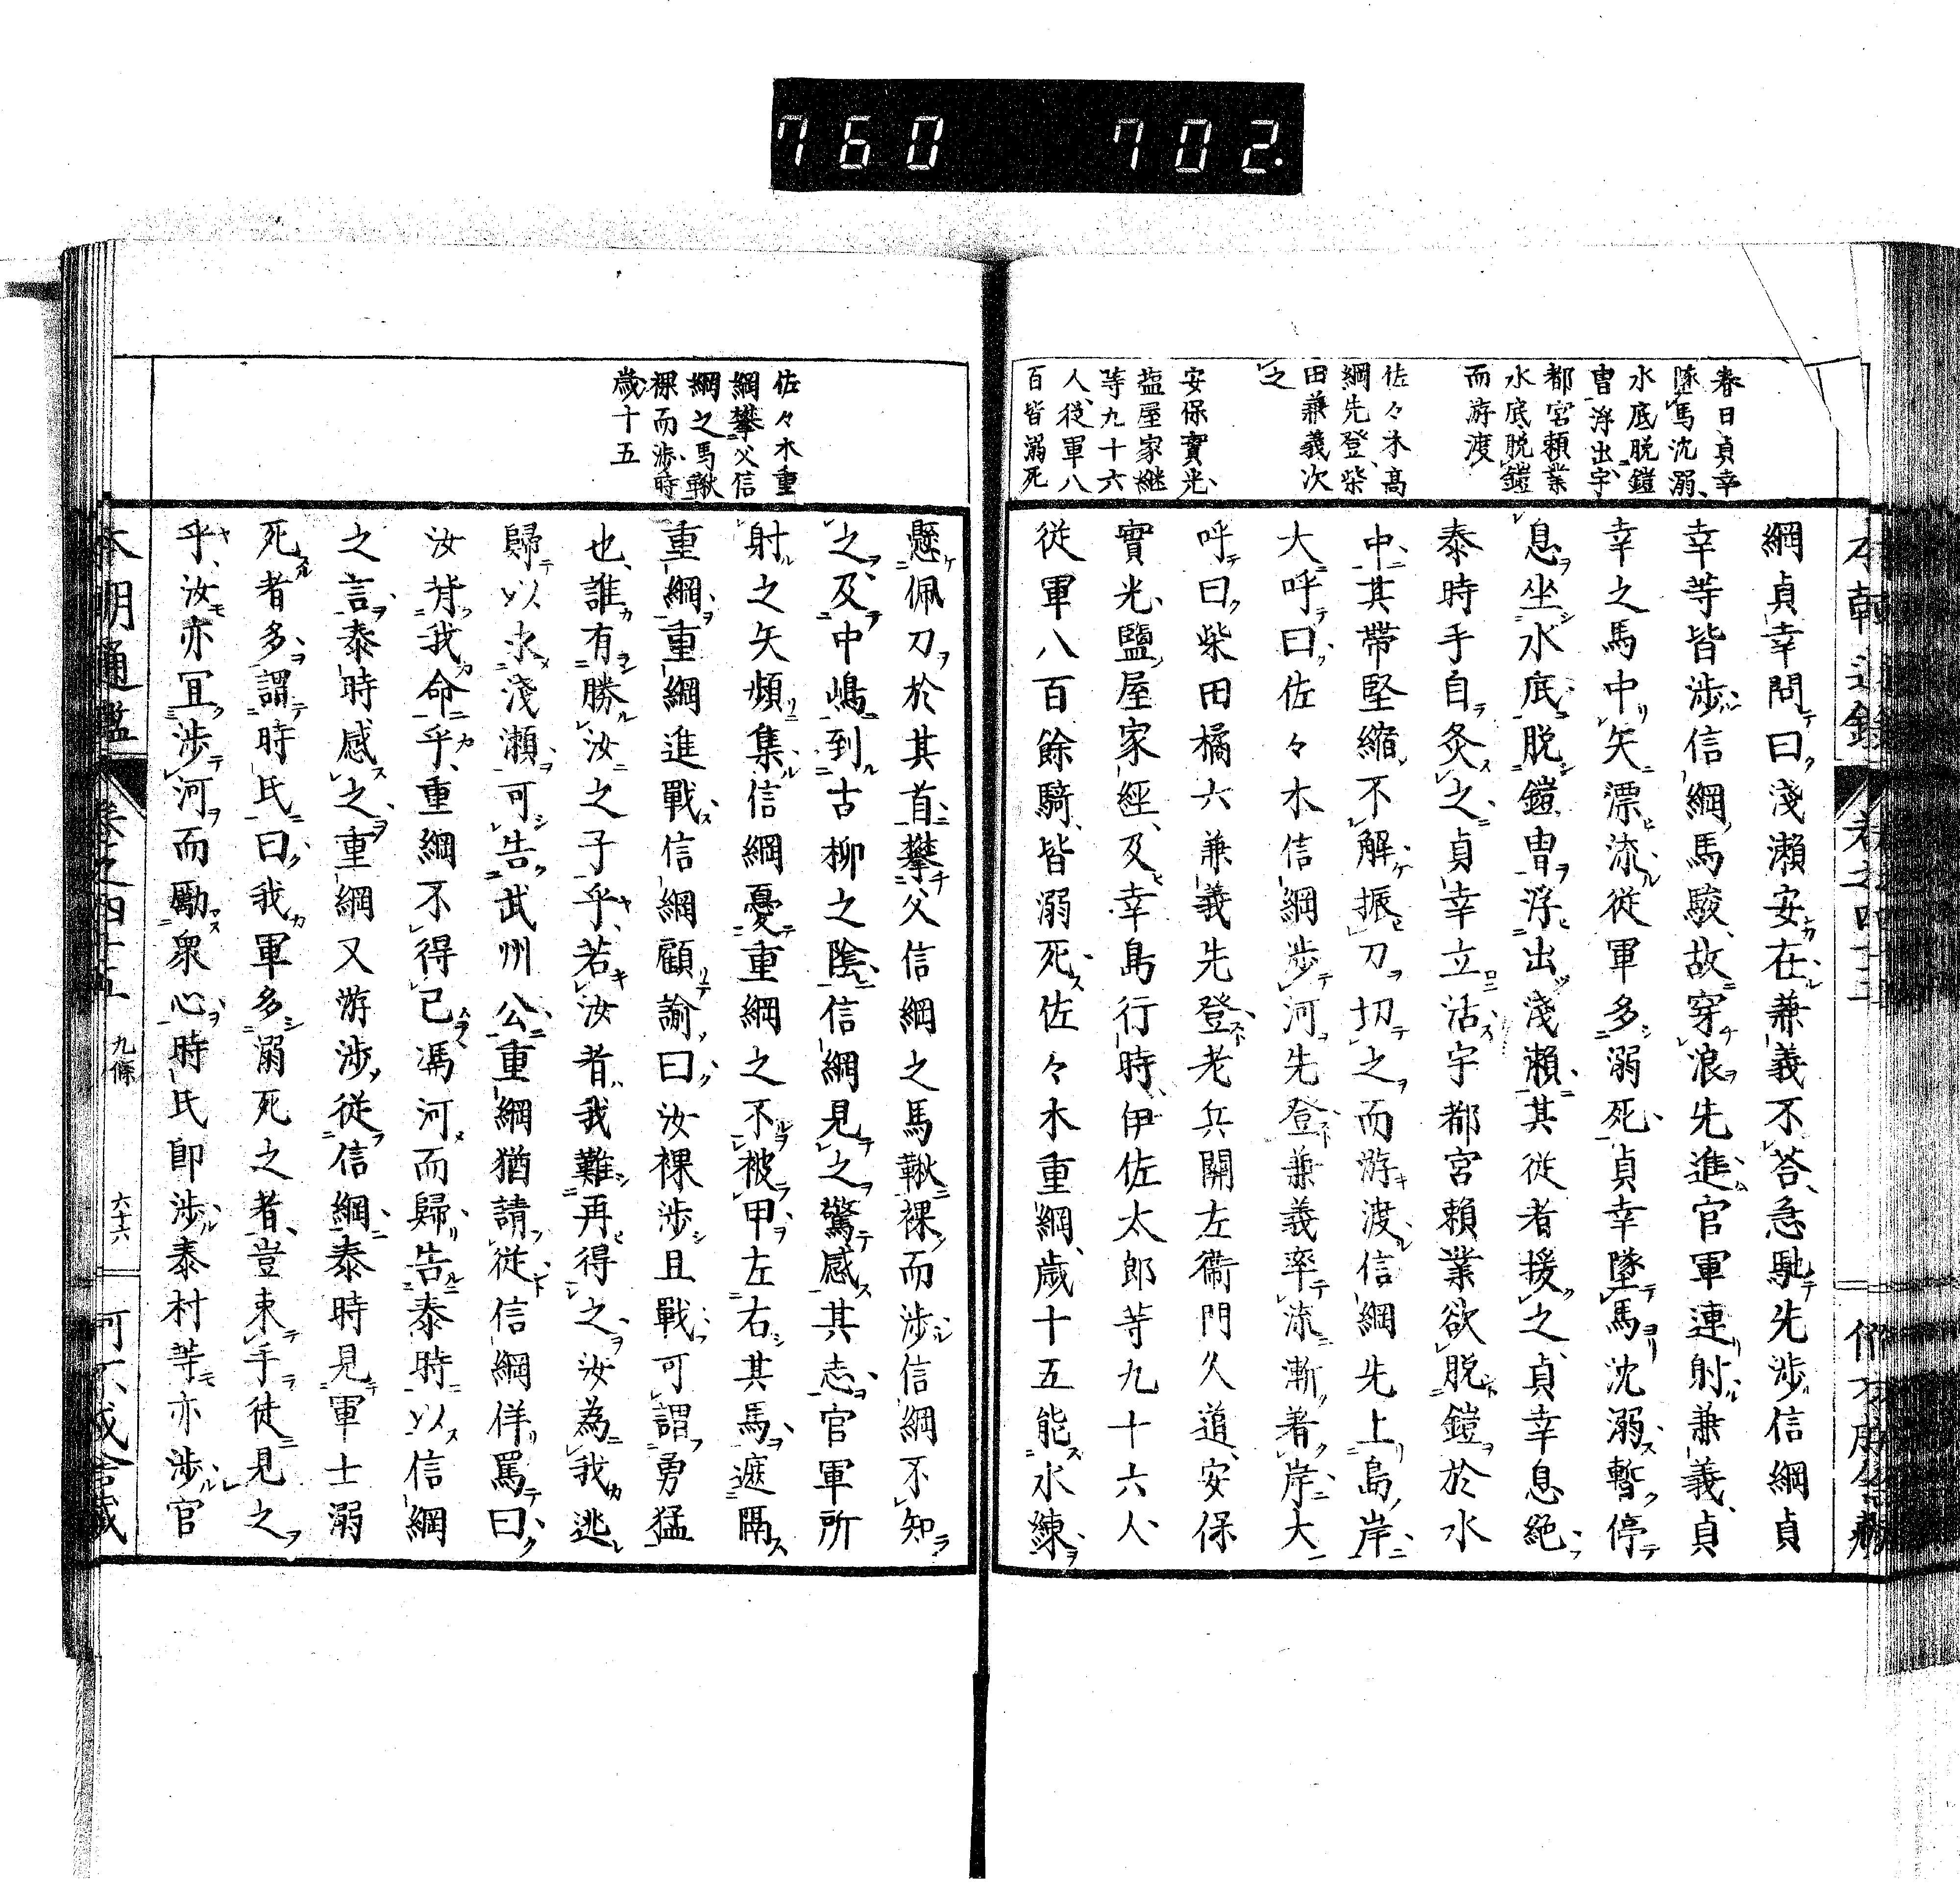 760 702
春日貞幸
墜馬沈溺、
水底脱鎧
冑浮出、宇
都宮頼業
水底脱鎧
而游渡
佐々木高
綱先登、柴
田兼義次
之
安保實光、
塩屋家継
等九十六
人、従軍八
百皆溺死
綱貞幸問曰淺瀬安在兼義不荅、急馳先渉信綱貞
幸等皆渉信綱馬駿、故穿浪先進官軍連射兼義、貞
幸之馬中矢漂流従軍多溺死貞幸墜馬沈溺暫停
息坐水底脱鎧冑浮出淺瀬其従者援之、貞幸息絶
泰時手自灸之貞幸立活宇都宮頼業欲脱鎧於水
中其帯堅縮不解振刀切之而游渡信綱先上島岸
大呼曰佐々木信綱渉河先登兼義率流漸着岸大
呼曰柴田橘六兼義先登老兵關左衞門久道、安保
實光、鹽屋家經、及幸島行時、伊佐太郎等九十六人、
従軍八百餘騎、皆溺死佐々木重綱、歳十五能水練
佐々木重
綱攀父信
綱之馬鞦
裸而渉、時
歳十五
懸佩刀於其首攀父信綱之馬鞦裸而渉信綱不知
之、及中嶋到古柳之陰信綱見之驚感其志官軍所
射之矢頻集信綱憂重綱之不被甲左右其馬遮隔
重綱重綱進戰信綱顧諭曰汝裸渉且戰可謂勇猛
也、誰有勝汝之子乎、若汝者我難再得之汝為我逃
歸以水淺瀬可告武州公重綱猶請従信綱佯罵曰
汝背我命乎、重綱不得已馮河而歸告泰時以信綱
之言泰時感之重綱又游渉従信綱泰時見軍士溺
死者多謂時氏曰我軍多溺死之者、豈束手徒見之
乎、汝亦宜渉河而勵衆心時氏即渉泰村等亦渉官
本朝通鑑
卷之四十五
九條
六十六